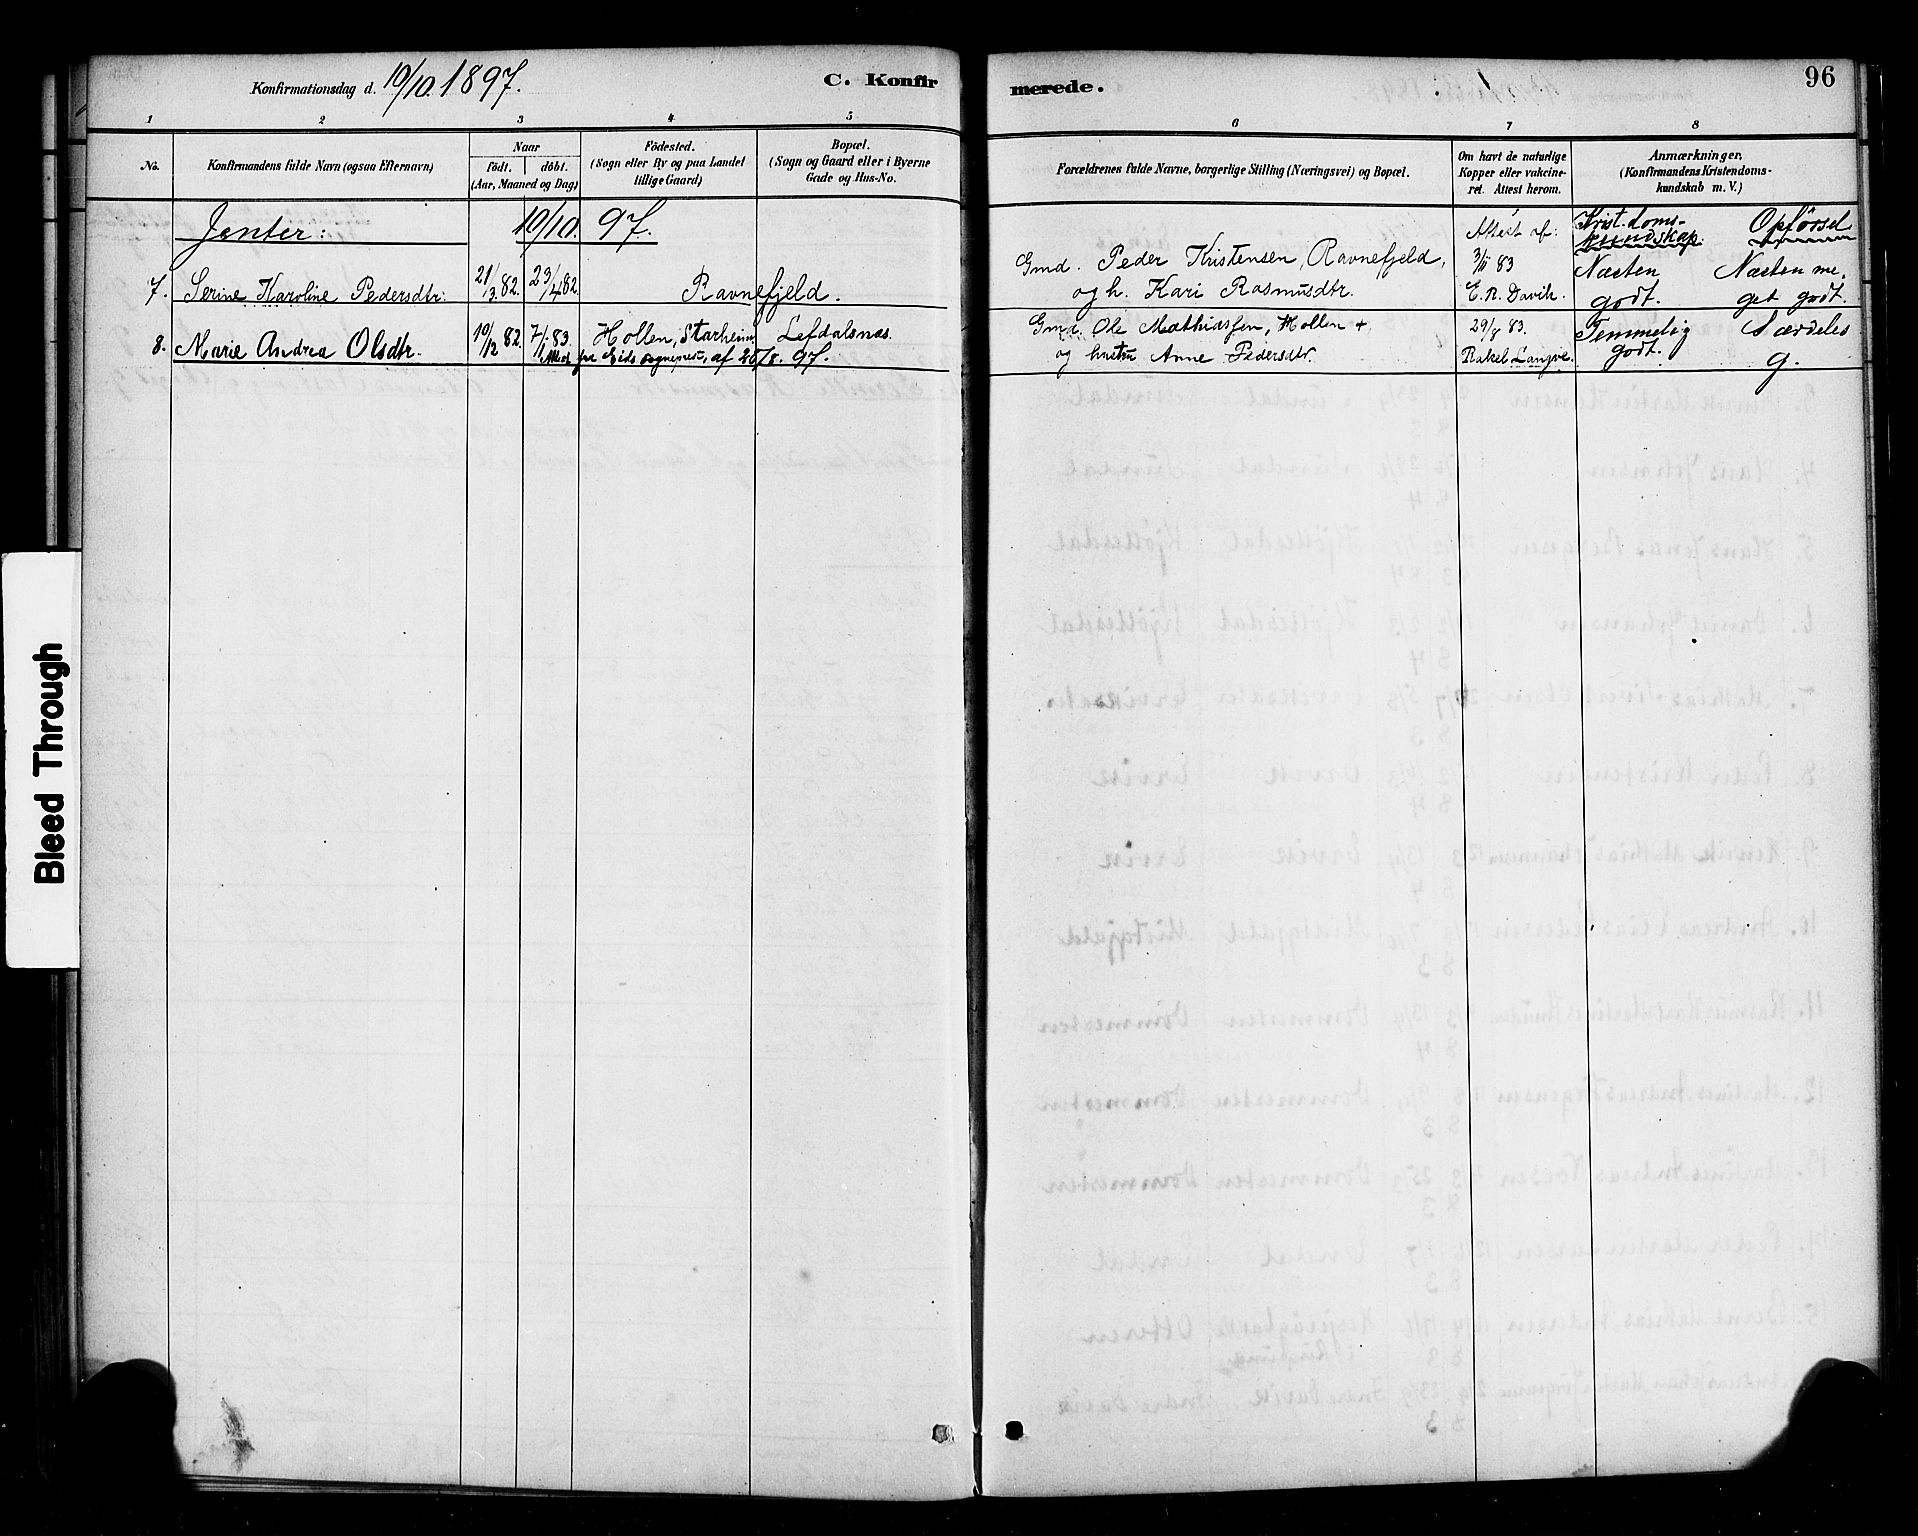 Konfirmationsdag d. 10/10 1897.
C. Konfir
merede.
96
1 2 3 4 5 6 7 8
No.
Konfirmandens fulde Navn (ogsaa Efternavn)
Naar
födt. döbt.
(Aar, Maaned og Dag)
Födested.
(Sogn eller By og paa Landet
tillige Gaard)
Bopæl.
(Sogn og Gaard eller i Byerne
Gade og Hus-No.
Forældrenes fulde Navne, borgerlige Stilling (Næringsvei) og Bopæl.
Om havt de naturlige
Kopper eller vakcine-
ret. Attest herom.
Anmærkninger.
(Konfirmandens Kristendoms-
kundskab m. V.)
Jenter: 10/10. 97.
Attest af:
Krist.doms-
kundskap.
Opförsel
7. Serine Karoline Pedersdtr. 21/3.82. 23/4 82. Ravnefjeld.
Gmd. Peder Kristensen, Ravnefjeld,
og h. Kari Rasmusdtr.
3/11 83
E. R. Davik.
Næsten
godt.
Næsten me-
get godt.
8. Marie Andrea Olsdtr. 10/12 82. 7/1.83. Hollen, Starheim, Lefdalsnæs.
Attest fra Eids sogneprest, af 30/8. 97.
Gmd. Ole Mathiassen, Hollen +
og hustru Anne Pedersdtr.
29/8 83.
Rakel
Temmelig
godt.
Særdeles
g.
Bleed Through